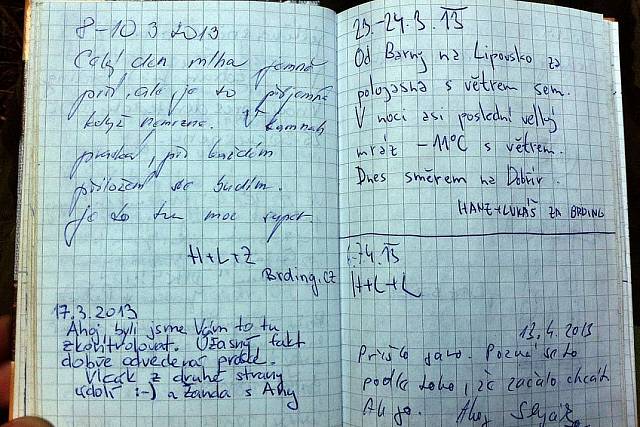 8-10 3 2013
Celý den mlha jemně
prší, ale je to příjemné
když nemrzne. V kamnech
praská, při každém
přiložení se budím.
je to tu moc super.
H+L+Z
Brding.cz
17.3.2013
Ahoj byli jsme Vám to tu
zkontrolovat. Úžasný fakt
dobře odvedená práce.
Vlčák z druhé strany
údolí :-) a Žanda s Amy
23.-24.3.13
Od Barny na Lipovsko za
polojasna s větrem sem.
V noci asi poslední velký
mráz -11°C s větrem.
Dnes směrem na Dobřív.
HANZ+LUKÁŠ ZA BRDING
-7.4.13
H+L+L
13.4.2013
Přišlo jaro. Pozná se to
podle toho, že začalo chcát.
Ahoj.